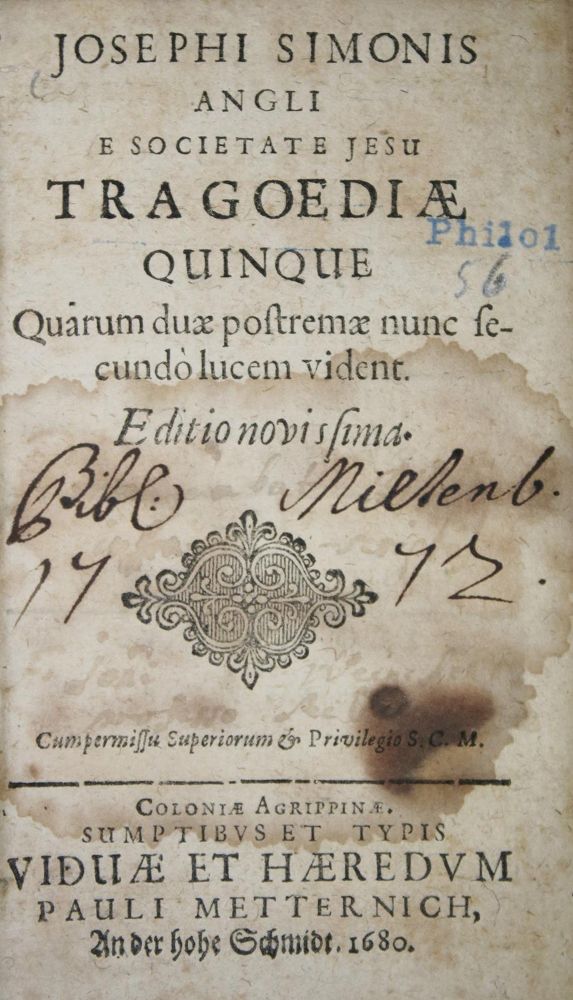 JOSEPHI SIMONIS
ANGLI
E SOCIETATE JESU
TRAGOEDIÆ
Philol
QUINQUE
56
Quarum duæ poſtremæ nunc ſe-
cundò lucem vident.
Editio noviſſima.
Bibl. Miltenb.
17 72.
Cum permiſſu Superiorum & Privilegio S. C. M.
COLONIÆ AGRIPPINÆ.
SUMPTIBVS ET TYPIS
VIDUÆ ET HÆREDVM
PAULI METTERNICH,
An der hohe Schmidt. 1680.